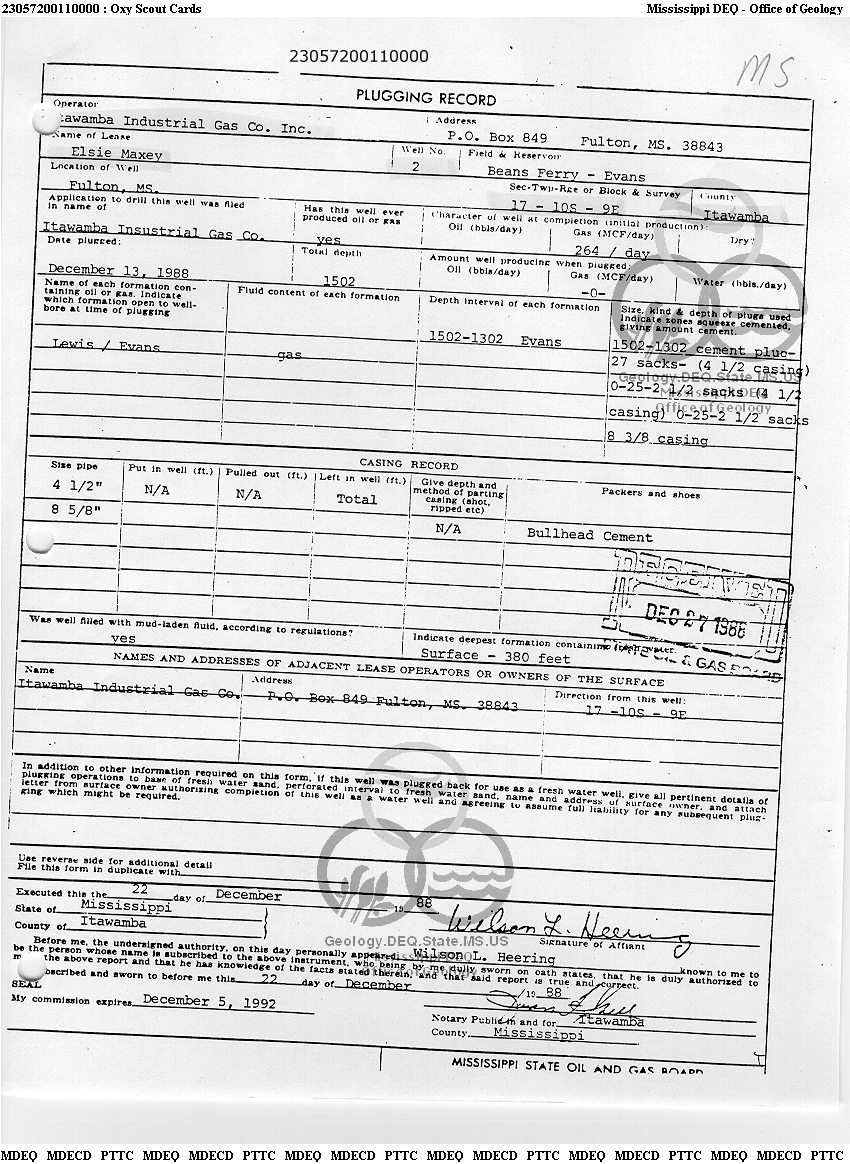 23057200110000 : Oxy Scout Cards Mississippi DEQ - Office of Geology
23057200110000
MS
PLUGGING RECORD
Operator
Itawamba Industrial Gas Co. Inc.
Address
P.O. Box 849 Fulton, MS. 38843
Name of Lease
Elsie Maxey
Well No.
2
Field & Reservoir
Beans Ferry - Evans
Location of Well
Fulton, MS.
Sec-Twp-Rge or Block & Survey
17 - 10S - 9E
County
Itawamba
Application to drill this well was filed
in name of
Itawamba Insustrial Gas Co.
Has this well ever
produced oil or gas
yes
Character of well at completion (initial production):
Oil (bbls/day) Gas (MCF/day) Dry?
264 / day
Date plugged:
December 13, 1988
Total depth
1502
Amount well producing when plugged:
Oil (bbls/day) Gas (MCF/day) Water (bbls./day)
-0-
Name of each formation con-
taining oil or gas. Indicate
which formation open to well-
bore at time of plugging
Fluid content of each formation
Depth interval of each formation
Size, kind & depth of plugs used
Indicate zones squeeze cemented,
giving amount cement.
Lewis / Evans
gas
1502-1302 Evans
1502-1302 cement plug-
27 sacks- (4 1/2 casing)
0-25-2 1/2 sacks (4 1/2
casing) 0-25-2 1/2 sacks
8 3/8 casing
Geology.DEQ.State.MS.US
Mississippi DEQ
Office of Geology
CASING RECORD
Size pipe Put in well (ft.) Pulled out (ft.) Left in well (ft.)
Give depth and
method of parting
casing (shot,
ripped etc)
Packers and shoes
4 1/2" N/A N/A Total
8 5/8"
N/A Bullhead Cement
RECEIVED
DEC 27 1988
STATE OIL & GAS BOARD
Was well filled with mud-laden fluid, according to regulations?
yes
Indicate deepest formation containing fresh water.
Surface - 380 feet
NAMES AND ADDRESSES OF ADJACENT LEASE OPERATORS OR OWNERS OF THE SURFACE
Name Address Direction from this well:
Itawamba Industrial Gas Co. P.O. Box 849 Fulton, MS. 38843 17 -10S - 9E
In addition to other information required on this form, if this well was plugged back for use as a fresh water well, give all pertinent details of
plugging operations to base of fresh water sand, perforated interval to fresh water sand, name and address of surface owner, and attach
letter from surface owner authorizing completion of this well as a water well and agreeing to assume full liability for any subsequent plug-
ging which might be required.
Use reverse side for additional detail
File this form in duplicate with
Executed this the 22 day of December 19 88
State of Mississippi
County of Itawamba
Wilson L. Heering
Signature of Affiant
Geology.DEQ.State.MS.US
Before me, the undersigned authority, on this day personally appeared Wilson L. Heering known to me to
be the person whose name is subscribed to the above instrument, who being by me dully sworn on oath states, that he is duly authorized to
the above report and that he has knowledge of the facts stated therein, and that said report is true and correct.
Subscribed and sworn to before me this 22 day of December 19 88
SEAL
My commission expires December 5, 1992
Notary Public in and for Itawamba
County, Mississippi
MISSISSIPPI STATE OIL AND GAS BOARD
MDEQ MDECD PTTC MDEQ MDECD PTTC MDEQ MDECD PTTC MDEQ MDECD PTTC MDEQ MDECD PTTC MDEQ MDECD PTTC